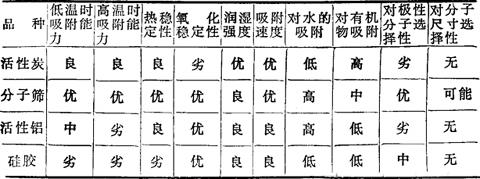 品种 低温时吸附能力 高温时吸附能力 热稳定性 氧化稳定性 润湿强度 吸附速度 对水的吸附 对有机物吸附 对极性分子选择性 对分子尺寸选择性
活性炭 良 良 良 劣 优 优 低 高 劣 无
分子筛 优 优 优 优 良 优 高 中 优 可能
活性铝 中 劣 良 优 良 良 高 低 劣 无
硅胶 劣 劣 劣 优 良 良 低 低 中 无